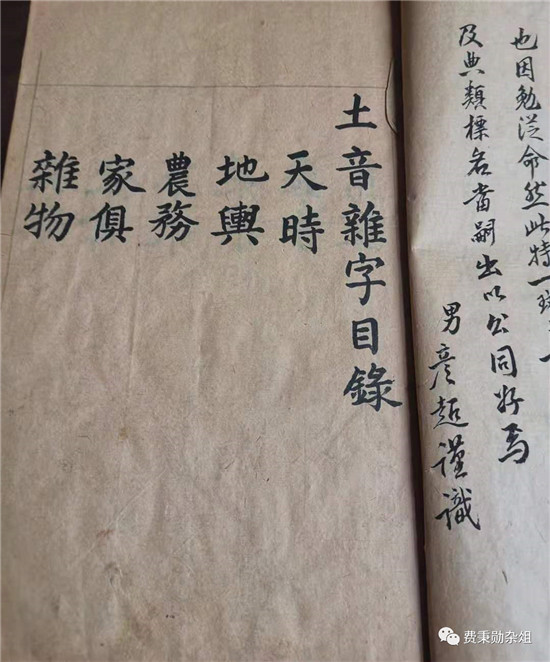 也因勉從命然此特一
及典類標名當嗣出以公同好焉
男彥超謹識
土音雜字目錄
天時
地輿
農務
家俱
雜物
费秉勋杂俎